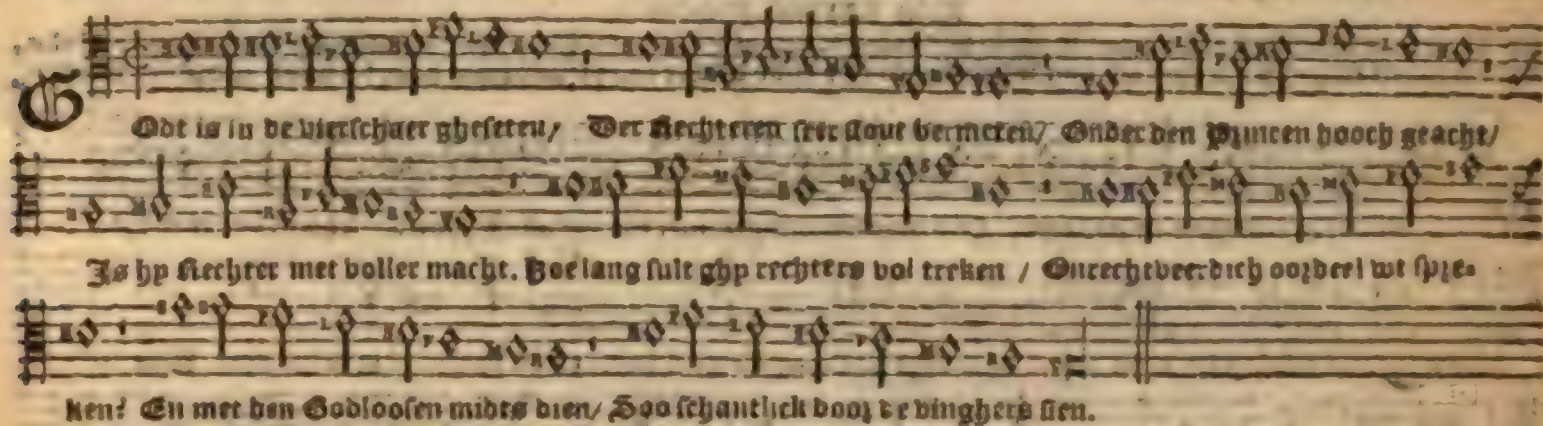 GOdt is in de vierschaer gheseten/ Der Rechteren seer stout vermeten/ Onder den Princen hooch geacht/
Is hy Rechter met voller macht. Hoe lang sult ghy rechters vol treken / Onrechtveerdich oordeel wt spre-
ken? En met den Godloosen midts dien/ Soo schantlick door de vinghers sien.